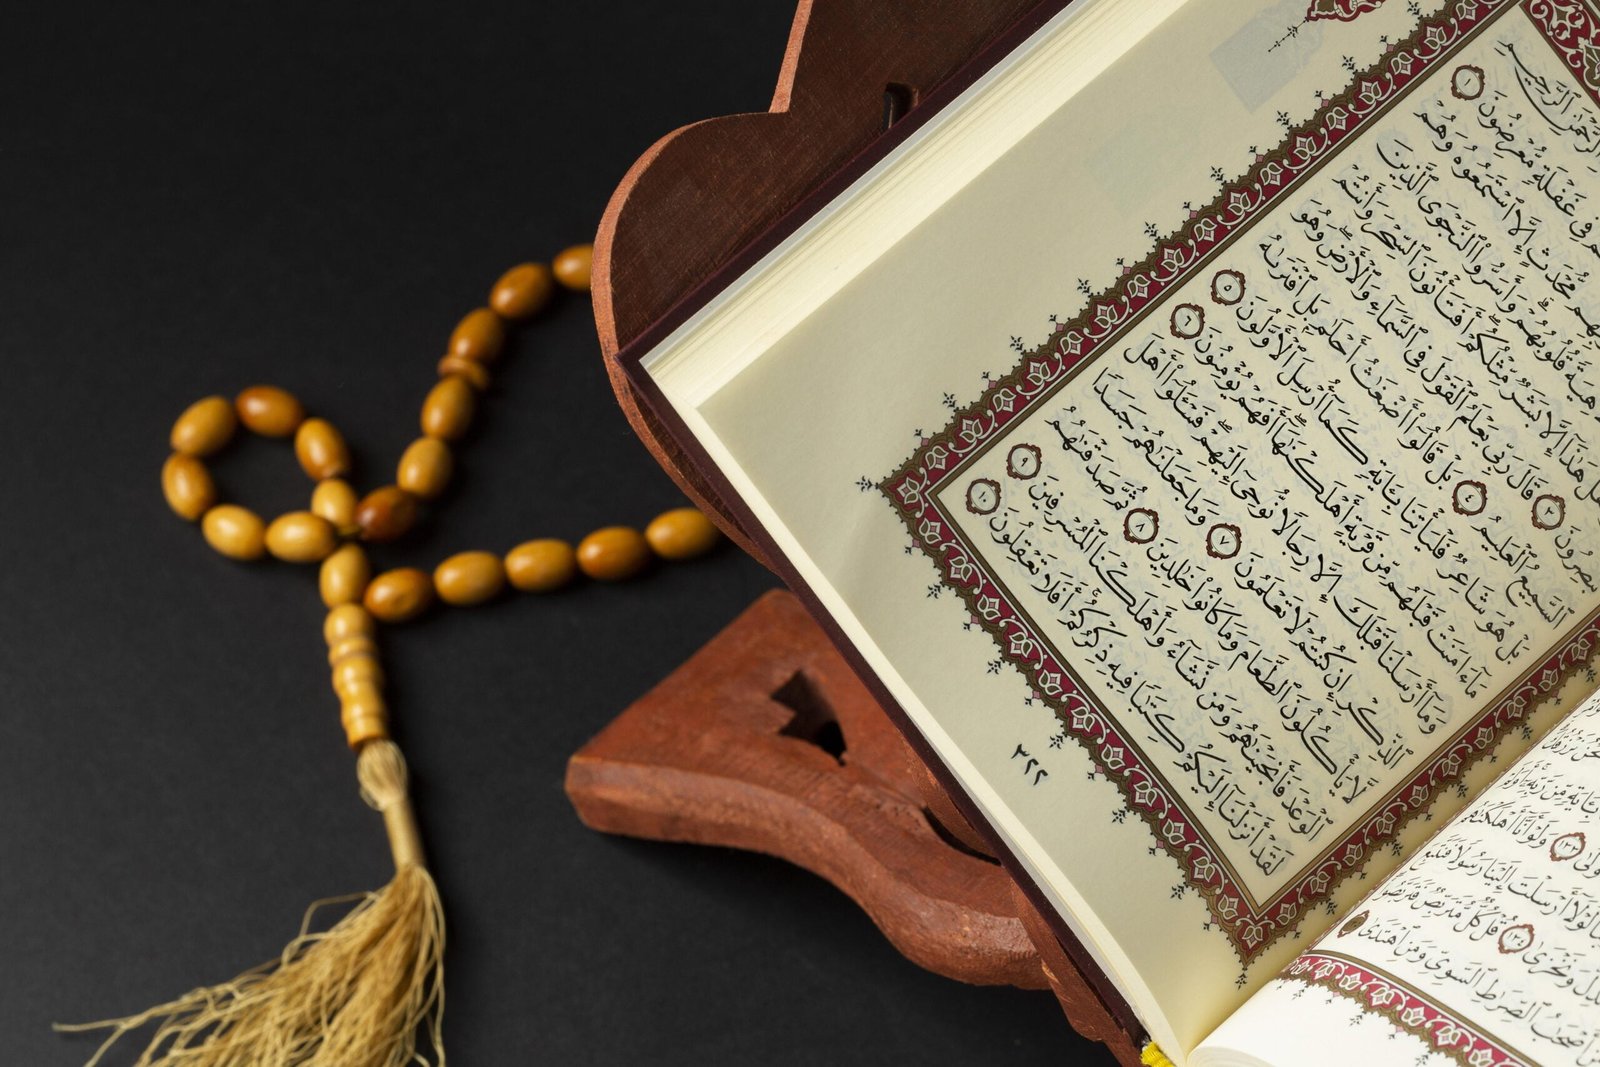 ٱلرَّحْمَٰنِ ٱلرَّحِيمِ
فِى غَفْلَةٍ مُّعْرِضُونَ ١
مُّحْدَثٍ إِلَّا ٱسْتَمَعُوهُ وَهُمْ
قُلُوبُهُمْ وَأَسَرُّوا۟ ٱلنَّجْوَى ٱلَّذِينَ
هَٰذَآ إِلَّا بَشَرٌ مِّثْلُكُمْ أَفَتَأْتُونَ ٱلسِّحْرَ وَأَنتُمْ
تُبْصِرُونَ ٣ قَالَ رَبِّى يَعْلَمُ ٱلْقَوْلَ فِى ٱلسَّمَآءِ وَٱلْأَرْضِ وَهُوَ
ٱلسَّمِيعُ ٱلْعَلِيمُ ٤ بَلْ قَالُوٓا۟ أَضْغَٰثُ أَحْلَٰمٍۭ بَلِ ٱفْتَرَىٰهُ
بَلْ هُوَ شَاعِرٌ فَلْيَأْتِنَا بِـَٔايَةٍ كَمَآ أُرْسِلَ ٱلْأَوَّلُونَ ٥
مَآ ءَامَنَتْ قَبْلَهُم مِّن قَرْيَةٍ أَهْلَكْنَٰهَآ أَفَهُمْ يُؤْمِنُونَ ٦
وَمَآ أَرْسَلْنَا قَبْلَكَ إِلَّا رِجَالًا نُّوحِىٓ إِلَيْهِمْ فَسْـَٔلُوٓا۟ أَهْلَ
ٱلذِّكْرِ إِن كُنتُمْ لَا تَعْلَمُونَ ٧ وَمَا جَعَلْنَٰهُمْ جَسَدًا
لَّا يَأْكُلُونَ ٱلطَّعَامَ وَمَا كَانُوا۟ خَٰلِدِينَ ٨ ثُمَّ صَدَقْنَٰهُمُ
ٱلْوَعْدَ فَأَنجَيْنَٰهُمْ وَمَن نَّشَآءُ وَأَهْلَكْنَا ٱلْمُسْرِفِينَ ٩
لَقَدْ أَنزَلْنَآ إِلَيْكُمْ كِتَٰبًا فِيهِ ذِكْرُكُمْ أَفَلَا تَعْقِلُونَ ١٠
٣٢٢
نَّحْنُ نَرْزُقُكَ
بِـَٔايَةٍ مِّن رَّبِّهِۦٓ أَوَلَمْ
وَلَوْ أَنَّآ أَهْلَكْنَٰهُم
لَوْلَآ أَرْسَلْتَ إِلَيْنَا رَسُولًا فَنَتَّبِعَ
وَنَخْزَىٰ ١٣٤ قُلْ كُلٌّ مُّتَرَبِّصٌ فَتَرَبَّصُوا۟
أَصْحَٰبُ ٱلصِّرَٰطِ ٱلسَّوِىِّ وَمَنِ ٱهْتَدَىٰ